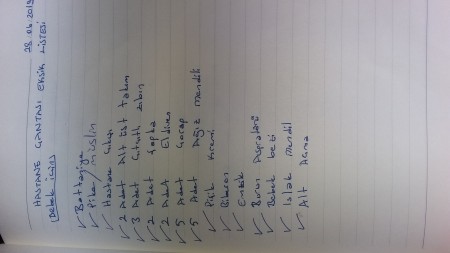 28.06.2019
HASTANE ÇANTASI EKSİK LİSTESİ
(Bebek için)
✓ Battaniye
✓ Pike / müslin
✓ Hastane Çıkışı
✓ 2 Adet Alt Üst takım
✓ 3 Adet Çıtçıtlı Zıbın
✓ 2 Adet Şapka
✓ 2 Adet Eldiven
✓ 5 Adet Çorap
✓ 5 Adet Ağız mendili
✓ Pişik kremi
✓ Biberon
✓ Emzik
✓ Burun Aspiratörü
✓ Bebek bezi
✓ Islak mendil
✓ Alt Açma